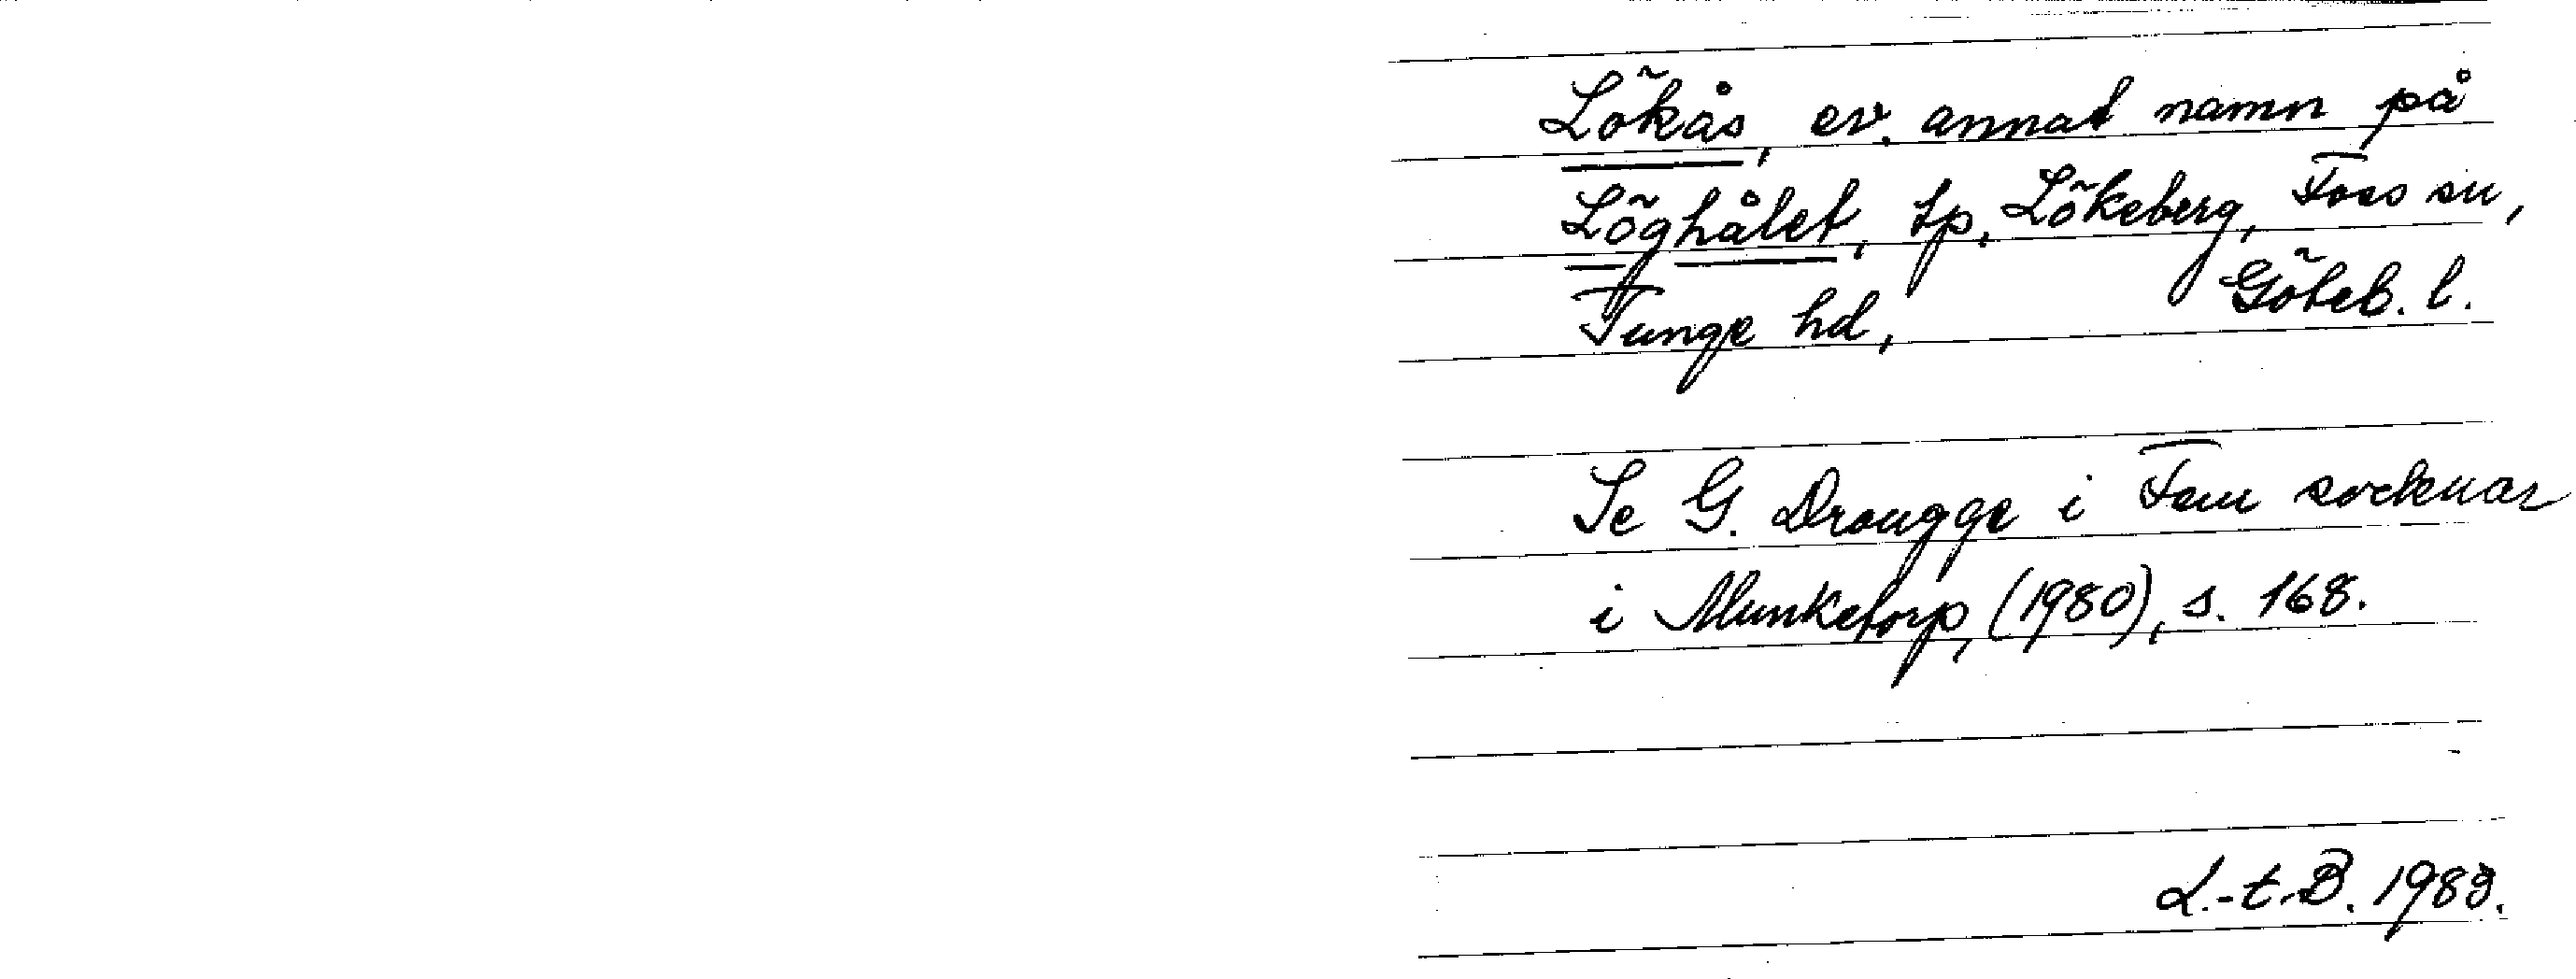 Lökås, ev. annat namn på
Löghålet, tp, Lökeberg, Foss sn,
Tunge hd, Göteb. l.
Se G. Drougge i Fem socknar
i Munketorp, (1980), s. 168.
L.-t. B. 1983.